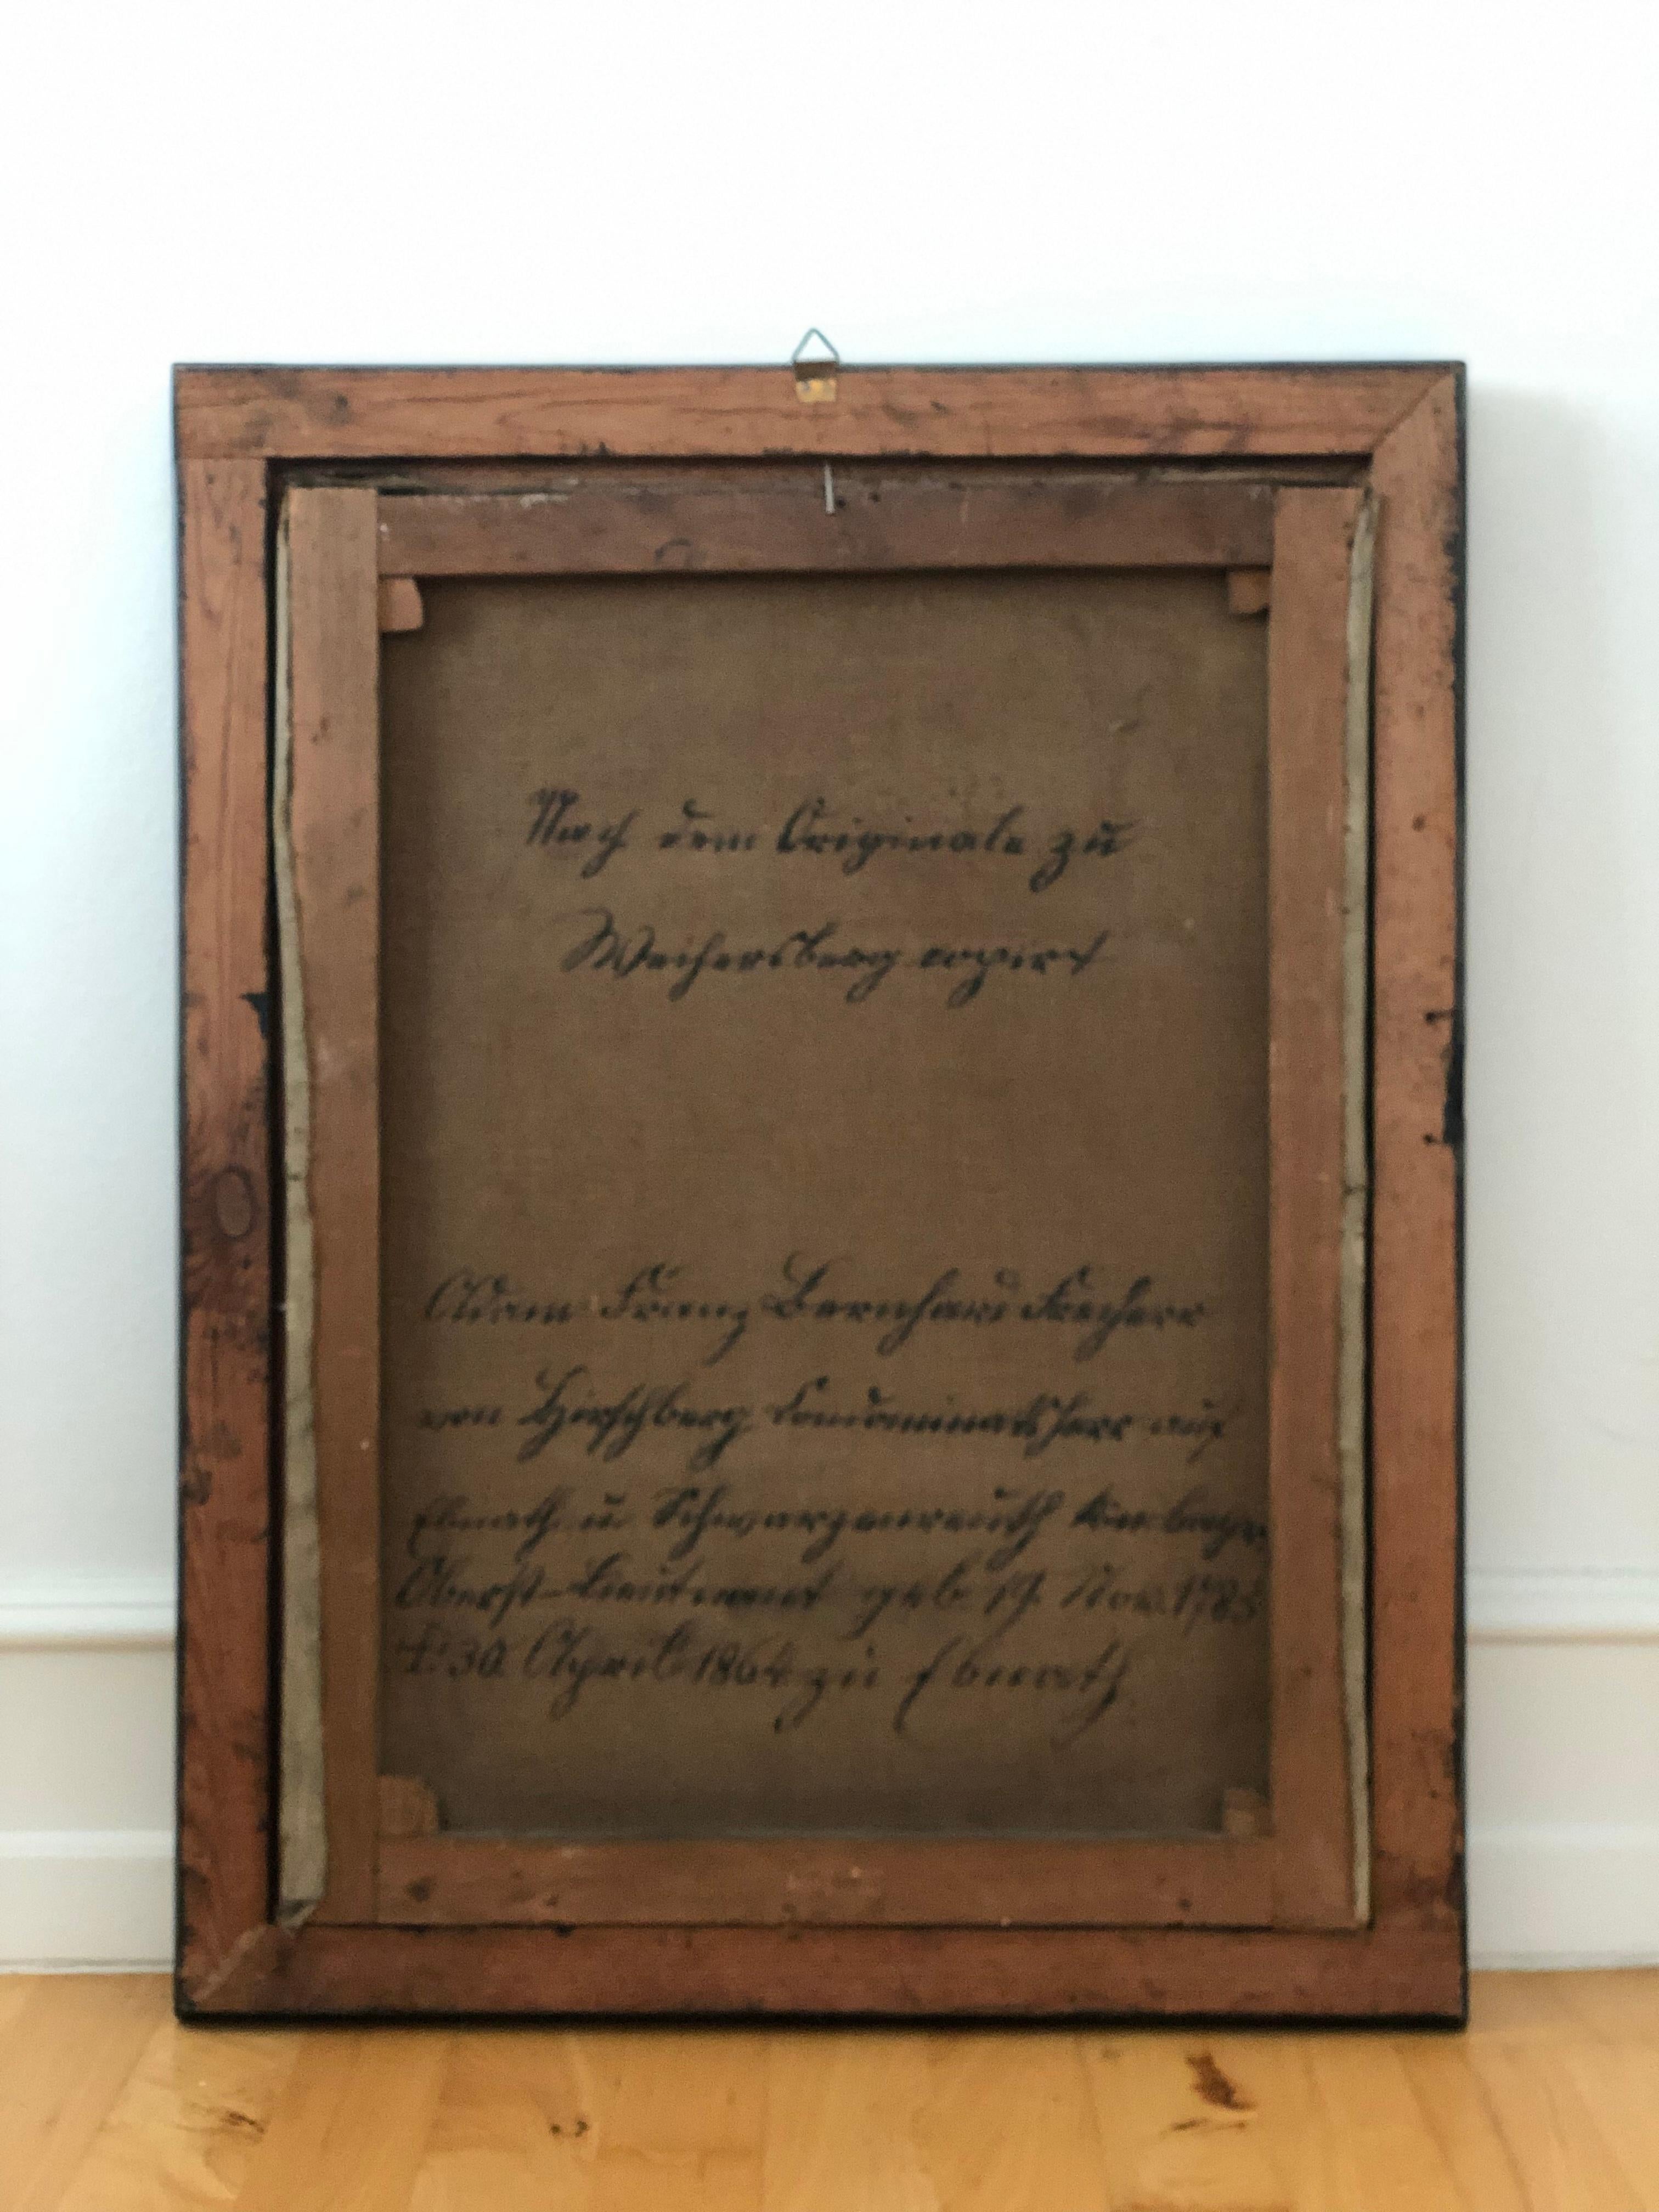 Nach dem Originale zu
Weihersberg copirt
Adam Franz Bernhard Freyherr
von Hirschberg Condominatsherr auf
Ebnath u Schwarzenreuth bayr.
Oberst-Lieutenant geb 19. Nov. 1785
† 30. April 1864 zu Ebnath